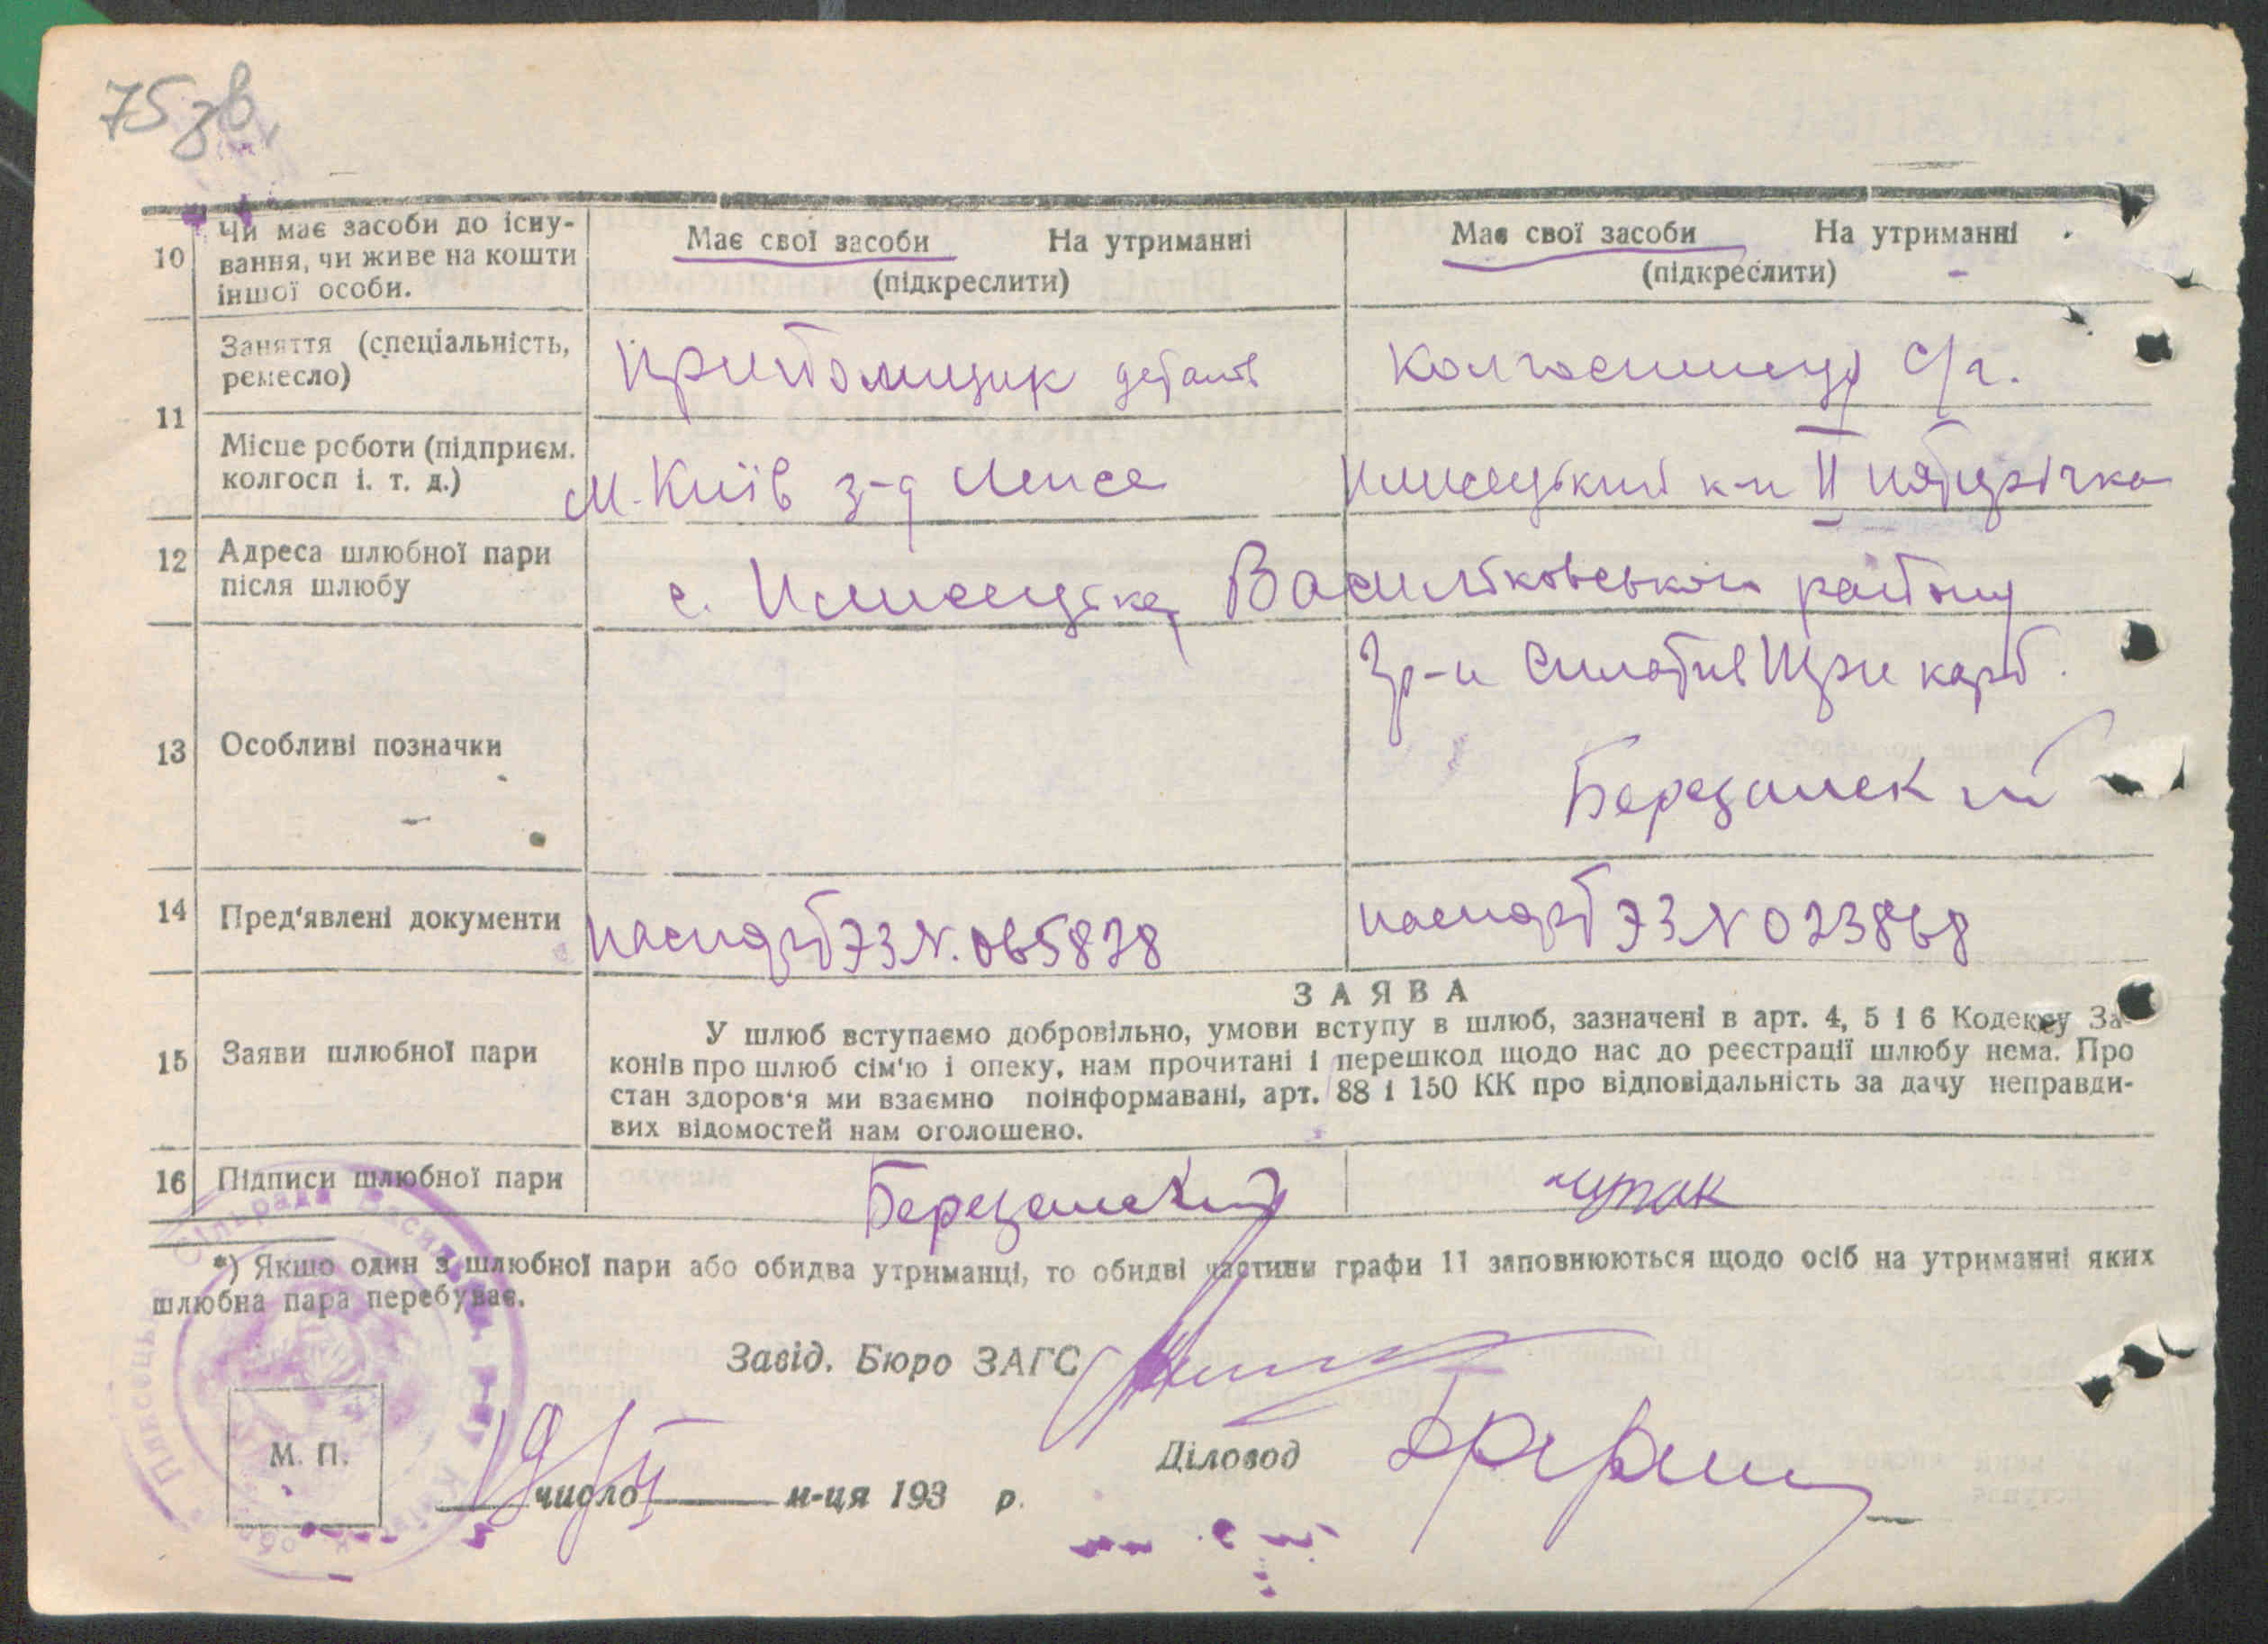 75 зв.
10 Чи має засоби до існу-
вання, чи живе на кошти
іншої особи.
Має свої засоби На утриманні
(підкреслити)
Має свої засоби На утриманні
(підкреслити)
11
Заняття (спеціальність,
ремесло)
прийомщик деталів
Колгоспниця с/г.
Місце роботи (підприєм.
колгосп і. т. д.)
м. Київ з-д Лепсе
Плисецький к-п II пятирічка
12 Адреса шлюбної пари
після шлюбу
с. Плисецьке, Васильковського району
13 Особливі позначки
Зр-и сплатив три карб.
Березанский
14 Пред'явлені документи
паспорт ЭЗ N. 065878
паспорт ЭЗ N 023868
15 Заяви шлюбної пари
ЗАЯВА
У шлюб вступаємо добровільно, умови вступу в шлюб, зазначені в арт. 4, 5 і 6 Кодексу За-
конів про шлюб сім'ю і опеку, нам прочитані і перешкод щодо нас до реєстрації шлюбу нема. Про
стан здоров'я ми взаємно поінформавані, арт. 88 і 150 КК про відповідальність за дачу неправди-
вих відомостей нам оголошено.
16 Підписи шлюбної пари
Березанский
Чупак
*) Якшо один з шлюбної пари або обидва утриманці, то обидві частины графи 11 заповнюються щодо осіб на утриманні яких
шлюбна пара перебуває.
Завід. Бюро ЗАГС
Діловод
М. П.
19/VI число м-ця 193 р.
Плисецька Сільрада Васильків. р-ну Київськ. обл.